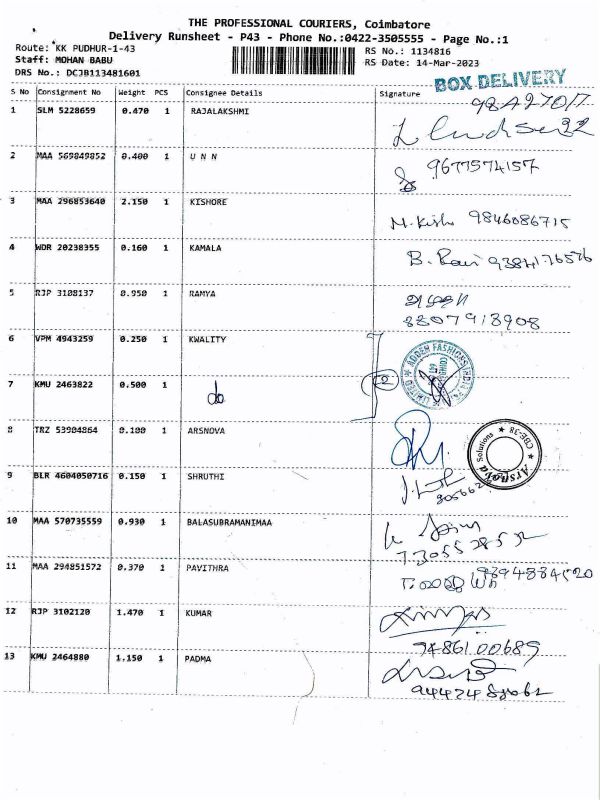 THE PROFESSIONAL COURIERS, Coimbatore
Delivery Runsheet - P43 - Phone No.:0422-3505555 - Page No.:1
Route: KK PUDHUR-1-43 RS No.: 1134816
Staff: MOHAN BABU RS Date: 14-Mar-2023
DRS No.: DCJB113481601
BOX DELIVERY
S No Consignment No Weight PCS Consignee Details Signature
1 SLM 5228659 0.470 1 RAJALAKSHMI
2 MAA 569849852 0.400 1 U N N 9677574157
3 MAA 296853640 2.150 1 KISHORE M. Kisho 9846086715
4 WDR 20238355 0.160 1 KAMALA B. Ravi 9384176576
5 RJP 3108137 0.950 1 RAMYA
8807913908
6 VPM 4943259 0.250 1 KWALITY
7 KMU 2463822 0.500 1 do
8 TRZ 53904864 0.100 1 ARSNOVA Arsnova Solutions ★ CBE-38 ★
9 BLR 4604050716 0.150 1 SHRUTHI
10 MAA 570735559 0.930 1 BALASUBRAMANIMAA
11 MAA 294851572 0.370 1 PAVITHRA
12 RJP 3102120 1.470 1 KUMAR
9486100689
13 KMU 2464880 1.150 1 PADMA